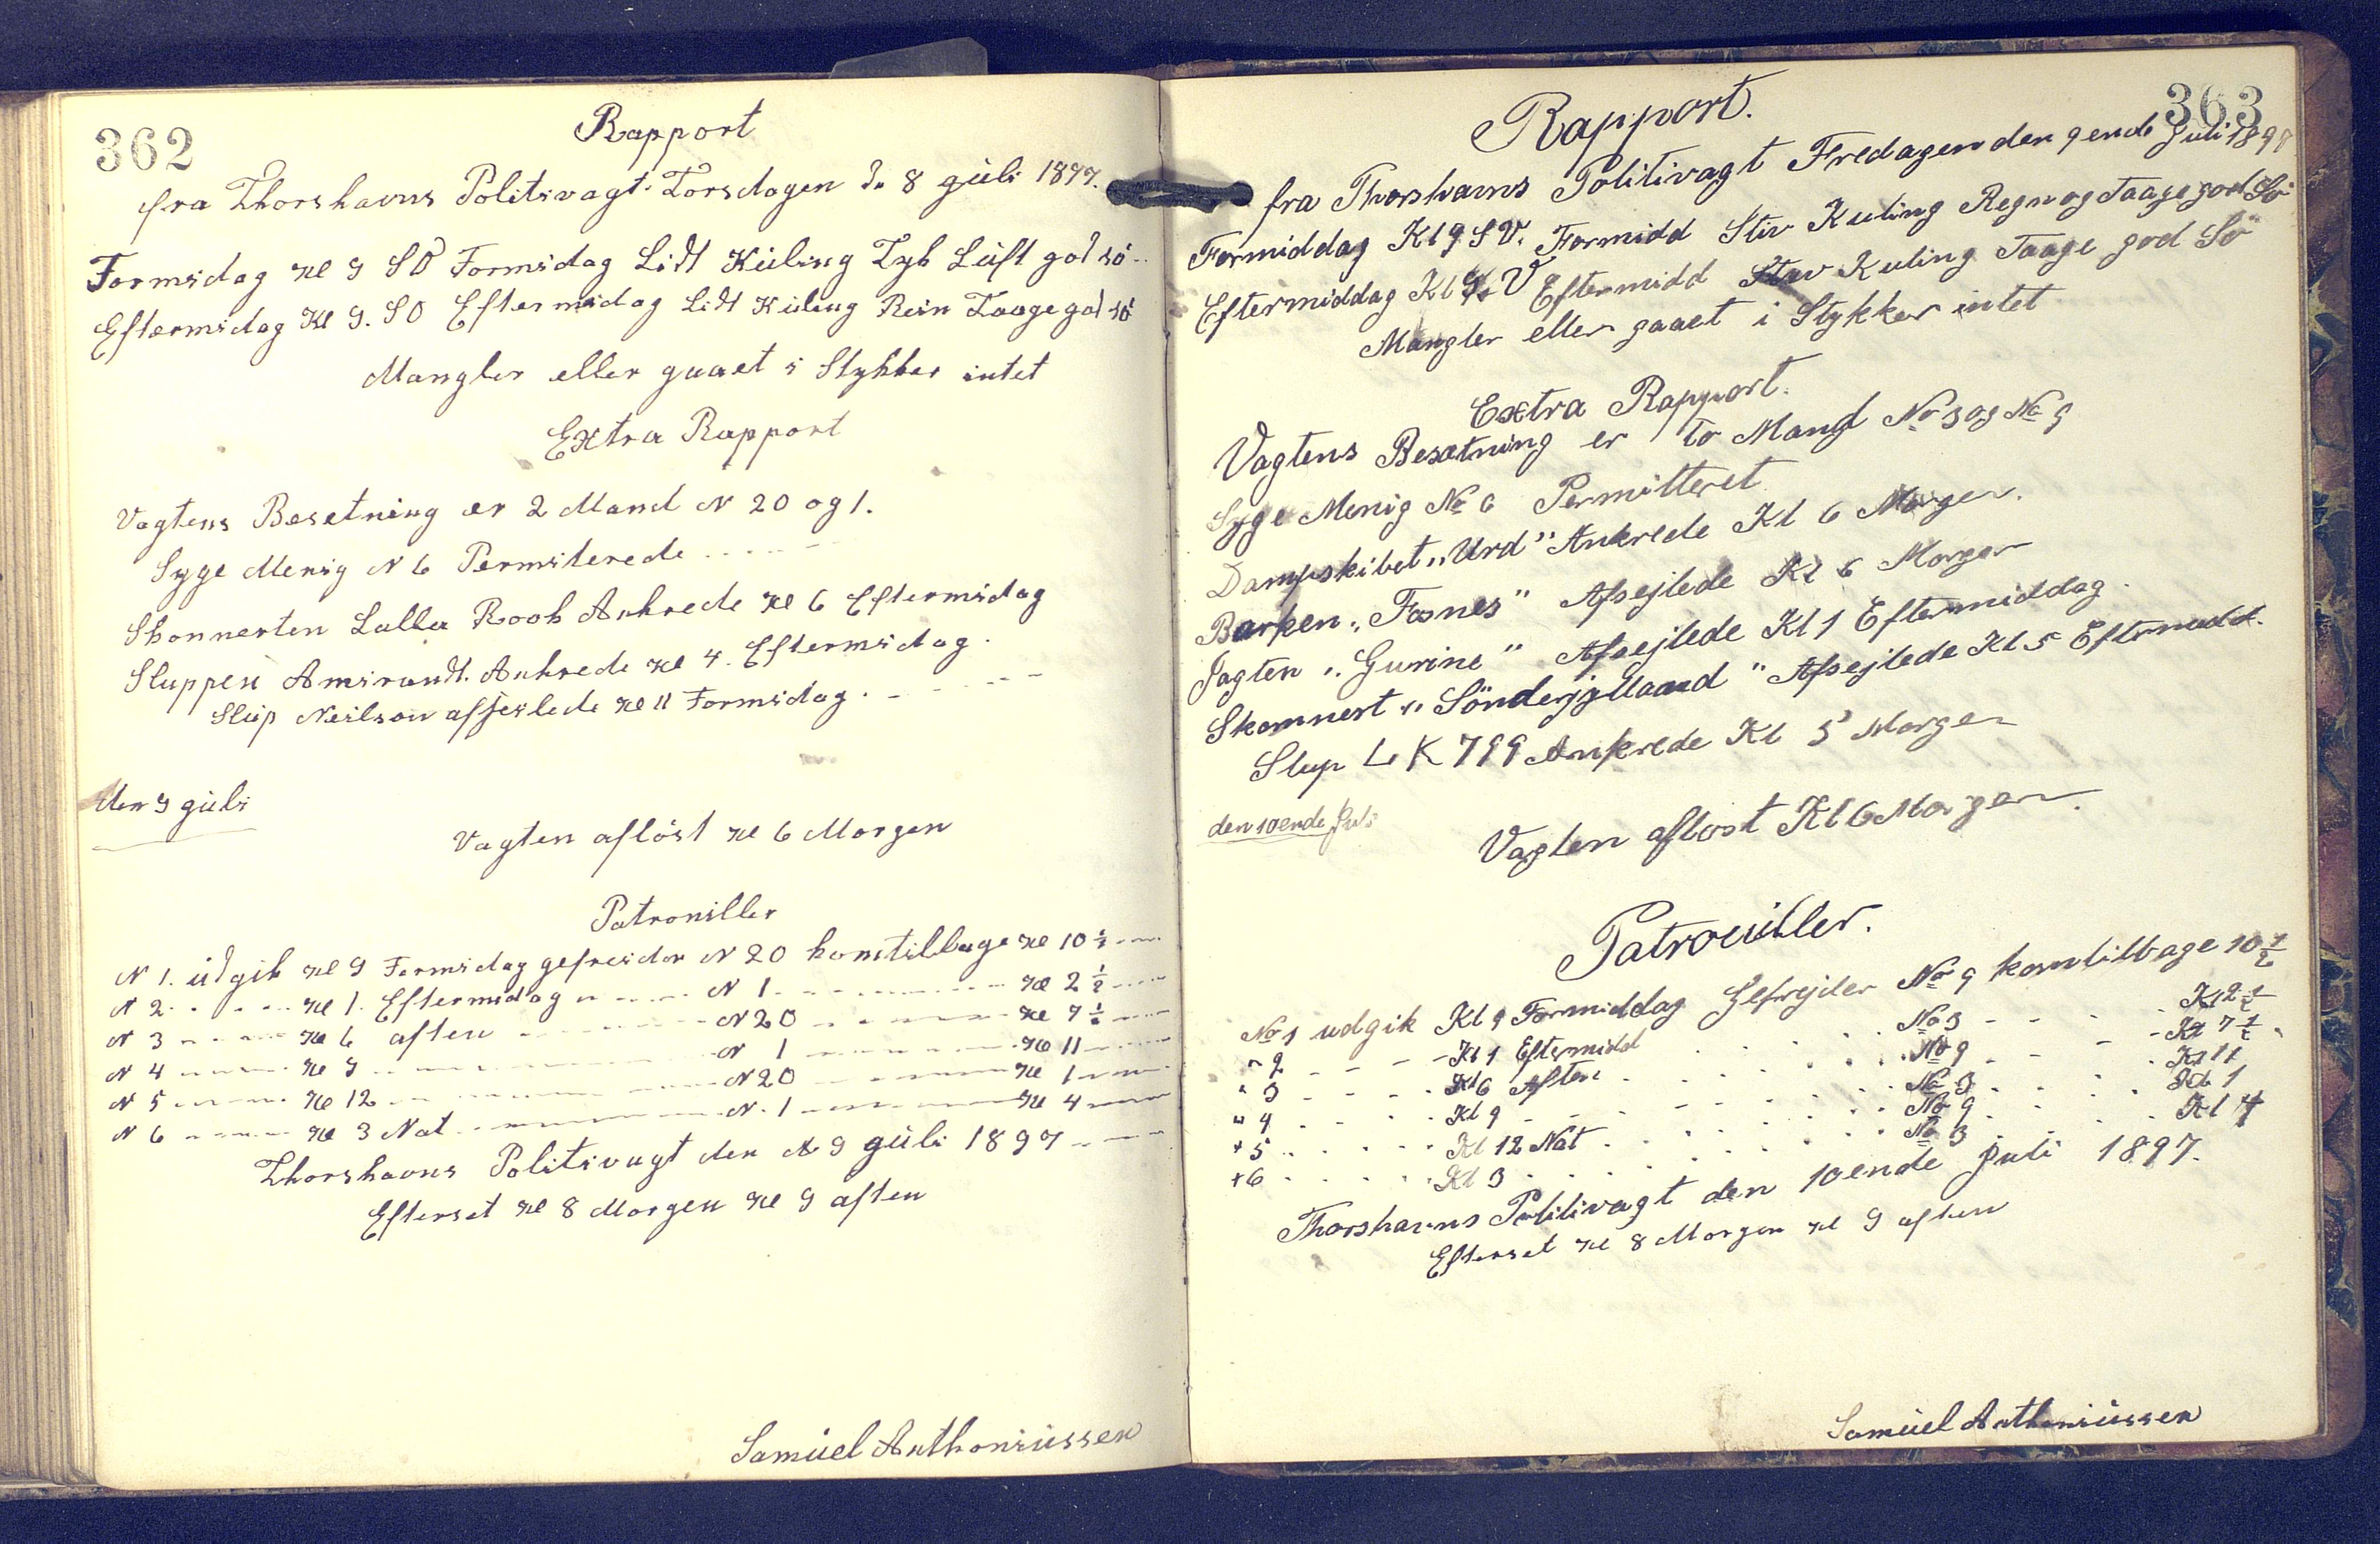 362
Rapport
fra Thorshavns Politivagt. Torsdagen d. 8 guli 1897.
Formidag Kl 9 SO Formidag Lidt Kuling Tyk Luft god sö
Eftermidag Kl 9. SO Eftermidag Lidt Kuling Rein Taage god sö
Mangler eller gaaet i Stykker intet
Extra Rapport
Vagtens Besetning er 2 Mand N 20 og 1.
Syge Menig N 6 Permiterede
Skonnerten Lalla Rook Ankrede Kl 6 Eftermidag
Sluppen Ankrede Kl 4. Eftermidag.
Slup Neilson afsejlede Kl 11 Formidag.
den 9 guli
Vagten aflöst Kl 6 Morgen
Patroniller
N 1. udgik Kl 9 Formidag gefreider N 20 komtilbage Kl 10 ½
N 2. Kl 1. Eftermidag N 1 Kl 2 ½
N 3 Kl 6 aften N 20 Kl 7 ½
N 4 Kl 9 N 1 Kl 11
N 5 Kl 12 N 20 Kl 1
N 6 Kl 3 Nat N. 1 Kl 4
Thorshavns Politivagt den 9 guli 1897
Efterset Kl 8 Morgen Kl 9 aften
Samuel Anthoniussen
363
Rapport.
fra Thorshavns Politivagt Fredagen den 9ende Juli 1897
Formiddag Kl 9 SV. Formidd Stiv Kuling Regn og Taage god Sö
Eftermiddag Kl 9. V Eftermidd Stiv Kuling Taage god Sö
Mangler eller gaaet i Stykker intet
Extra Rapport.
Vagtens Besætning er to Mand No 3 og No 9
Syge Menig No 6 Permitteret
Dampskibet "Urd" Ankrede Kl 6 Morgen.
Barken "Fosnes" Afsejlede Kl 6 Morgen
Jagten "Gurine" Afsejlede Kl 1 Eftermiddag.
Skonnert "Sönderjylland" Afsejlede Kl 5 Eftermidd.
Slup LK 799 Ankrede Kl 5 Morgen
den 10ende Juli
Vagten aflöst Kl 6 Morgen.
Patrouiller.
No 1 udgik Kl 9 Formiddag Gefrejder No 9 komtilbage 10 ½
" 2 Kl 1 Eftermidd No 3 Kl 2 ½
" 3 Kl 6 Aften No 9 Kl 7 ½
" 4 Kl 9 No 3 Kl 11
" 5 Kl 12 Nat No 9 Kl 1
" 6 Kl 3 No 3 Kl 4
Thorshavns Politivagt den 10ende Juli 1897.
Efterset Kl 8 Morgen Kl 9 aften
Samuel Anthoniussen